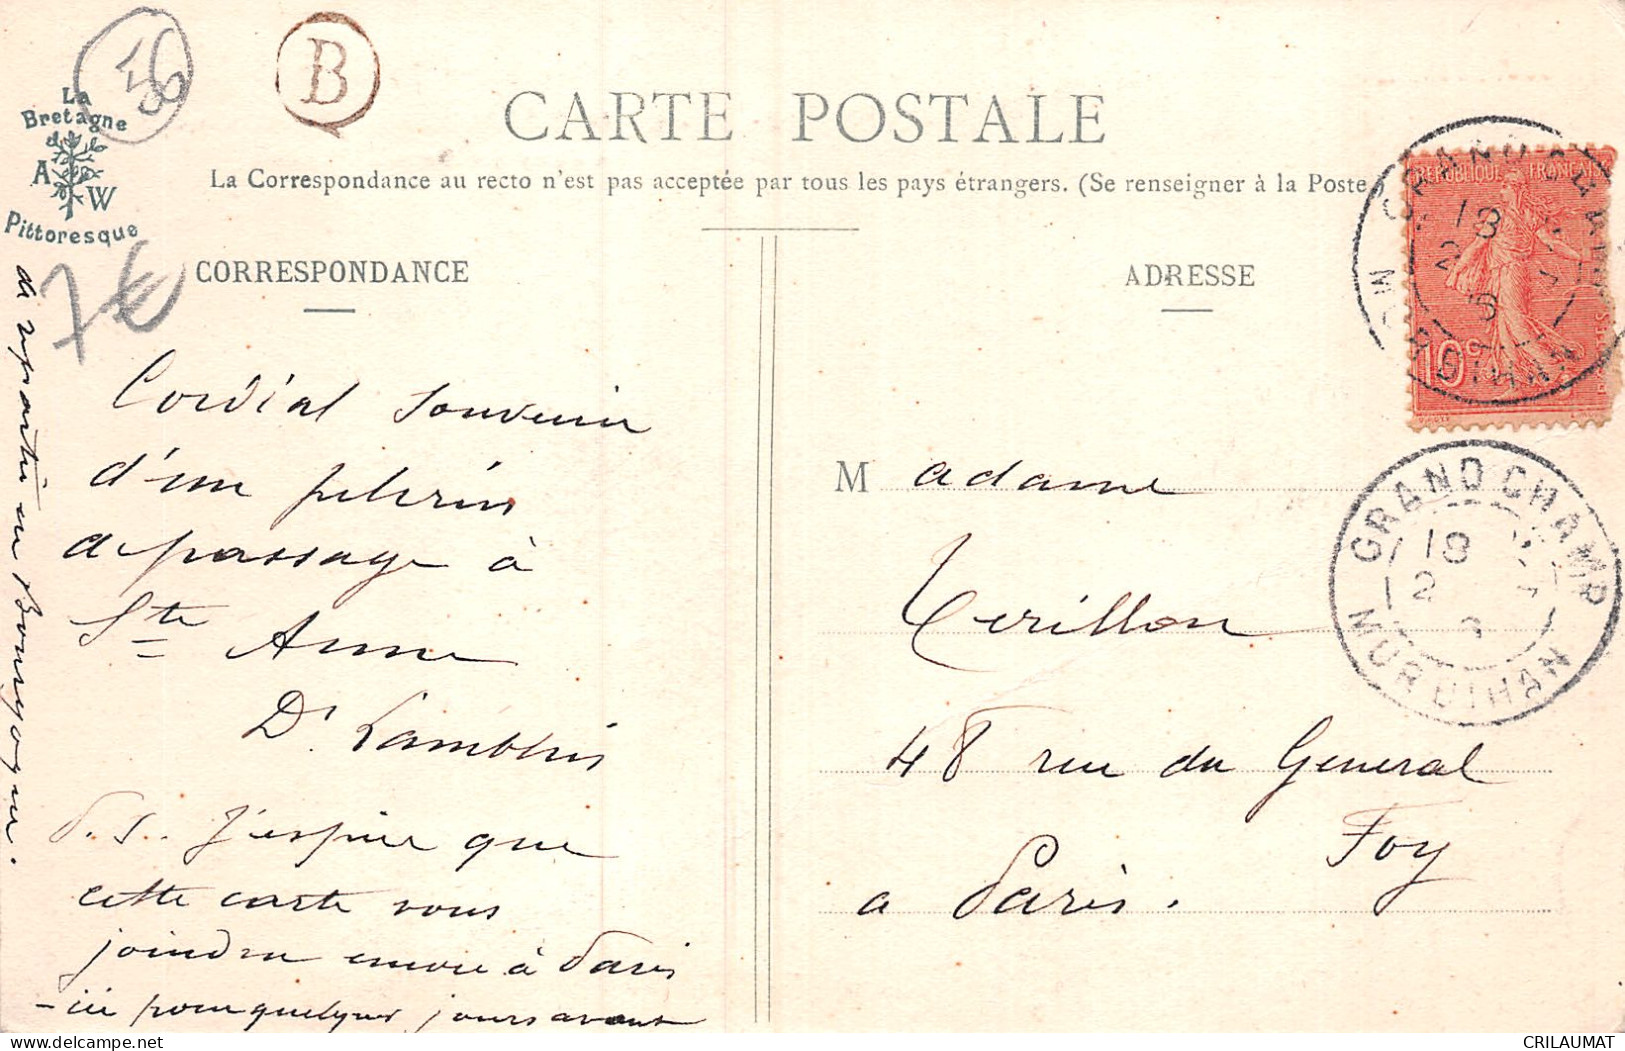 56
B
La
Bretagne
A W
Pittoresque
7€
CARTE POSTALE
La Correspondance au recto n'est pas acceptée par tous les pays étrangers. (Se renseigner à la Poste
CORRESPONDANCE
ADRESSE
REPUBLIQUE FRANÇAISE
10c
GRAND CHAMP
18
2
MORBIHAN
GRAND CHAMP
18
12
MORBIHAN
Cordial souvenir
d'un pelerin
de passage à
Ste Anne
Dr
P.S. J'espère que
cette carte vous
joindra encore à Paris
- ici pour quelques jours avant
de repartir en Bourgogne.
M adame
Terillon
48 rue du General
Foy
a Paris.
delcampe.net
CRILAUMAT